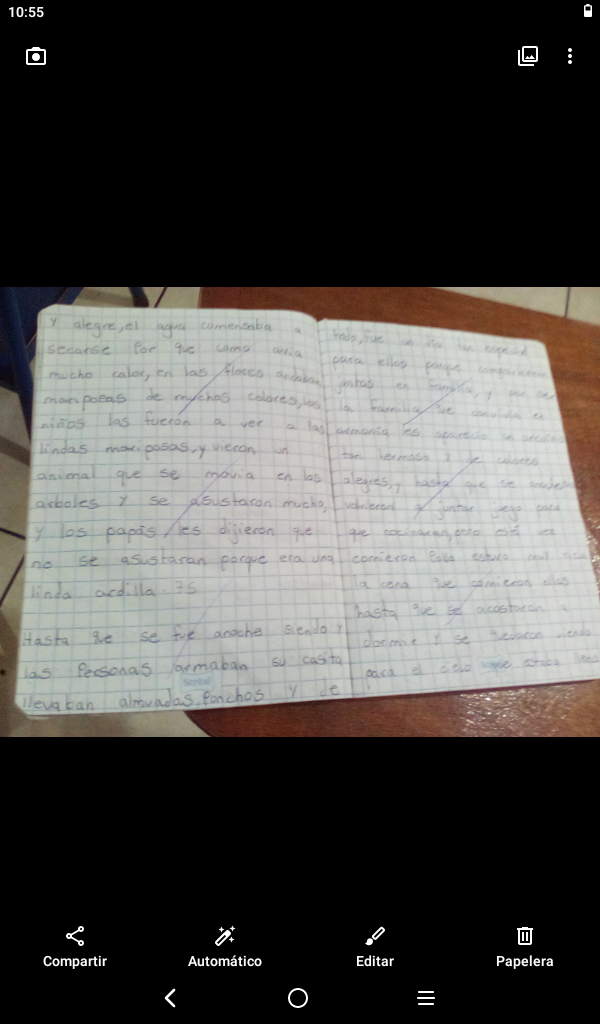 10:55
y alegre, el agua comensaba a
secarse por que como avia
mucho calor, en las flores andaban
mariposas de muchos colores, los
niños las fueron a ver a las
lindas mariposas, y vieron un
animal que se movia en los
arboles y se asustaron mucho,
y los papás les dijieron que
no se asustaran porque era una
linda ardilla. 75
Hasta que se fue anoche siendo y
las personas armaban su casita
llevaban almuadas, ponchos y de
todo, fue un dia tan especial
para ellos porque compartieron
juntos en familia, y por ser
la familia que convivia en
armonia les aparecio un
tan hermoso y de colores
alegres, y hasta que se
volvieron a juntar
que cocinaran, pero
comieron Pollo estuvo rica
la cena que comieron ellos
hasta que se acostaron a
dormir y se viendo
para el cielo estaba
Compartir
Automático
Editar
Papelera